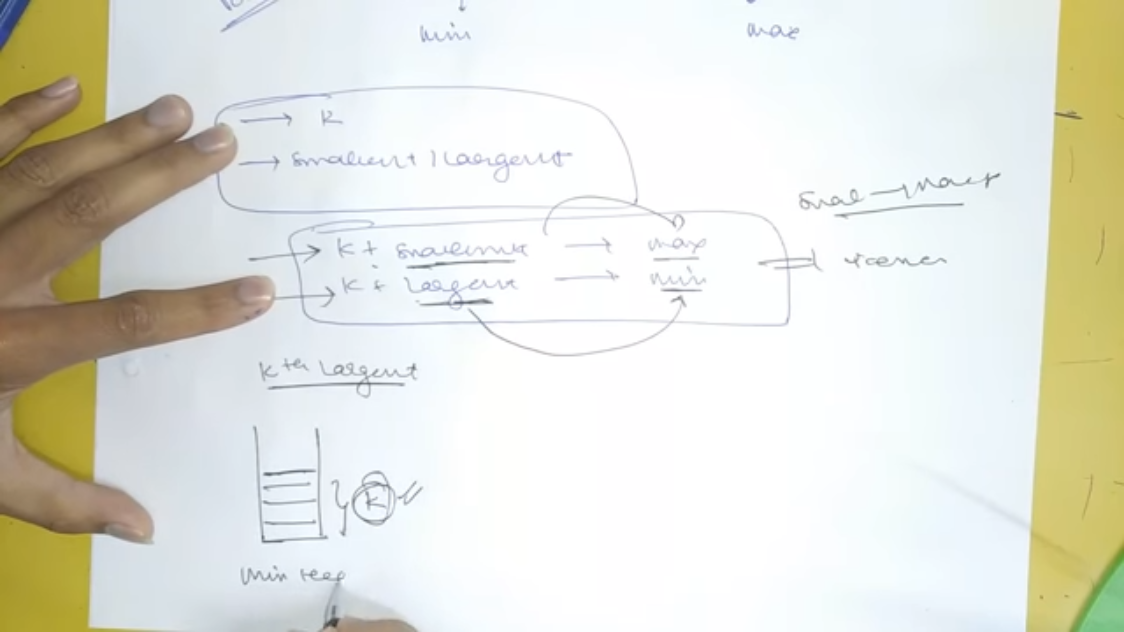 min
max
→ K
→ Smallest / Largest
K + Smallest → max
K + Largest → min
Kth Largest
K
Min Heap